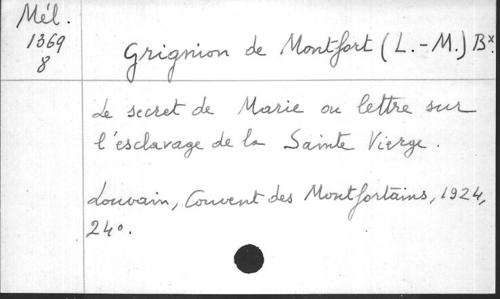 Mél.
1369
8
Grignion de Montfort (L.-M.) Bx.
Le secret de Marie ou lettre sur
l'esclavage de la Sainte Vierge.
Louvain, Couvent des Montfortains, 1924,
24°.